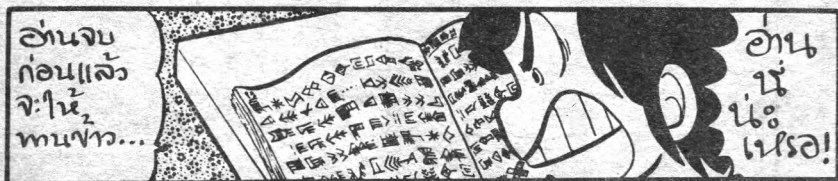 อ่านจบ
ก่อนแล้ว
จะให้
ทานข้าว...
อ่าน
นี่
น่ะ
เหรอ!